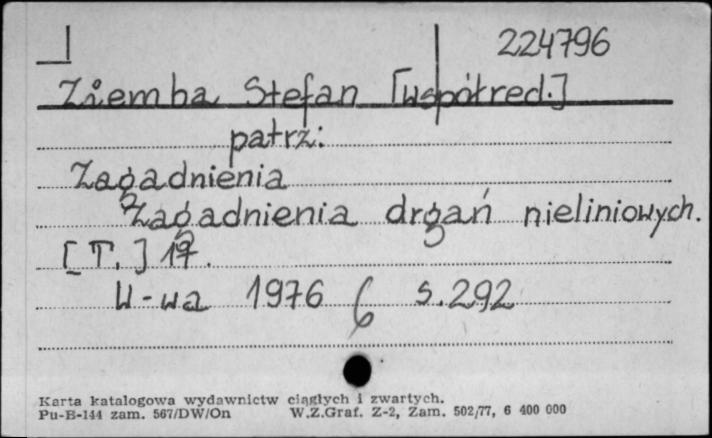 224796
Ziemba Stefan [współred.]
patrz:
Zagadnienia
Zagadnienia drgań nieliniowych.
[T.] 17.
W-wa 1976 s.292
Karta katalogowa wydawnictw ciągłych i zwartych.
Pu-B-144 zam. 567/DW/On W.Z.Graf. Z-2, Zam. 502/77, 6 400 000